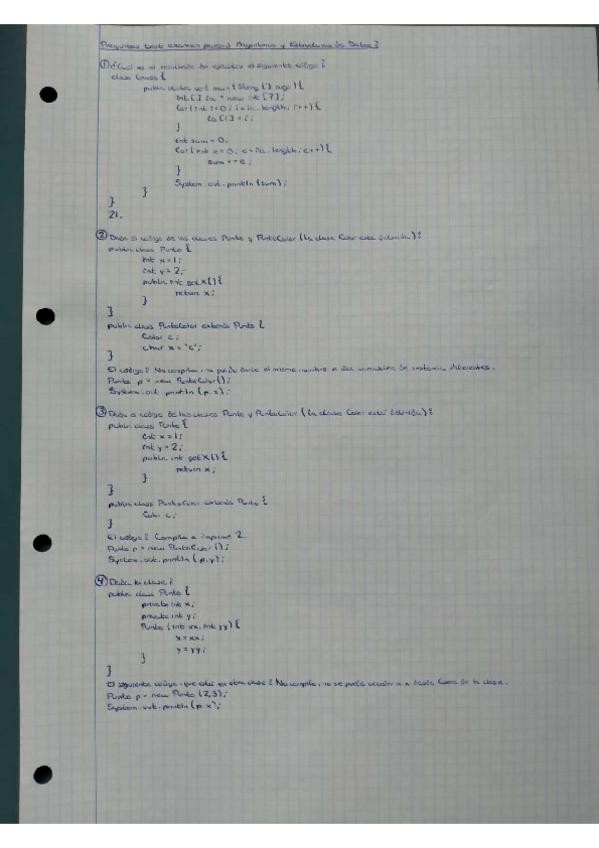 Preguntas test examen parcial Algoritmos y Estructuras de Datos:
① ¿Cuál es el resultado de ejecutar el siguiente código?
class Gauss {
public static void main (String [] args) {
int [] ia = new int [7];
for (int i=0; i<ia.length; i++) {
ia [i] = i;
}
int sum = 0;
for (int e=0; e<ia.length; e++) {
sum += e;
}
System.out.println (sum);
}
}
21.
② Dado el código de las clases Punto y PuntoColor (la clase Color está definida):
public class Punto {
int x=1;
int y=2;
public int getX() {
return x;
}
}
public class PuntoColor extends Punto {
Color c;
char x = "c";
}
El código: No compila, no puede darse el mismo nombre a dos variables de diferentes.
Punto p = new PuntoColor();
System.out.println (p.x);
③ Dado el código de las clases Punto y PuntoColor (la clase Color está definida):
public class Punto {
int x=1;
int y=2;
public int getX() {
return x;
}
}
public class PuntoColor extends Punto {
Color c;
}
El código: Compila e imprime 2.
Punto p = new PuntoColor();
System.out.println (p.y);
④ Dada la clase:
public class Punto {
private int x;
private int y;
Punto (int xx, int yy) {
x=xx;
y=yy;
}
}
El siguiente código, que está en otra clase: No compila, no se puede acceder a x desde fuera de la clase.
Punto p = new Punto (2,3);
System.out.println (p.x);